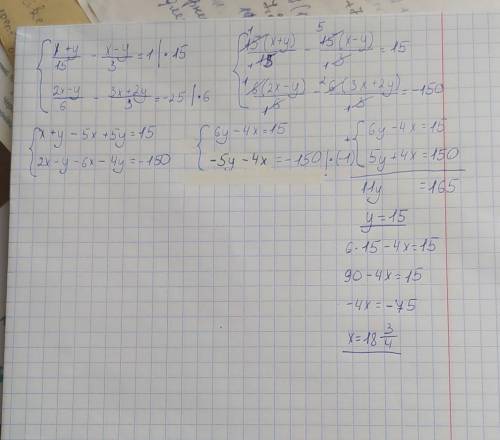 { (x+y)/15 - (x-y)/3 = 1 | · 15
(2x-y)/6 - (3x+2y)/3 = -25 | · 6
{ ¹15(x+y)/₁15 - ⁵15(x-y)/₁3 = 15
¹6(2x-y)/₁6 - ²6(3x+2y)/₁3 = -150
{ x+y-5x+5y=15
2x-y-6x-4y=-150
{ 6y-4x=15
-5y-4x=-150 | · (-1)
+{ 6y-4x=15
5y+4x=150
11y =165
y=15
6·15-4x=15
90-4x=15
-4x=-75
x=18 3/4